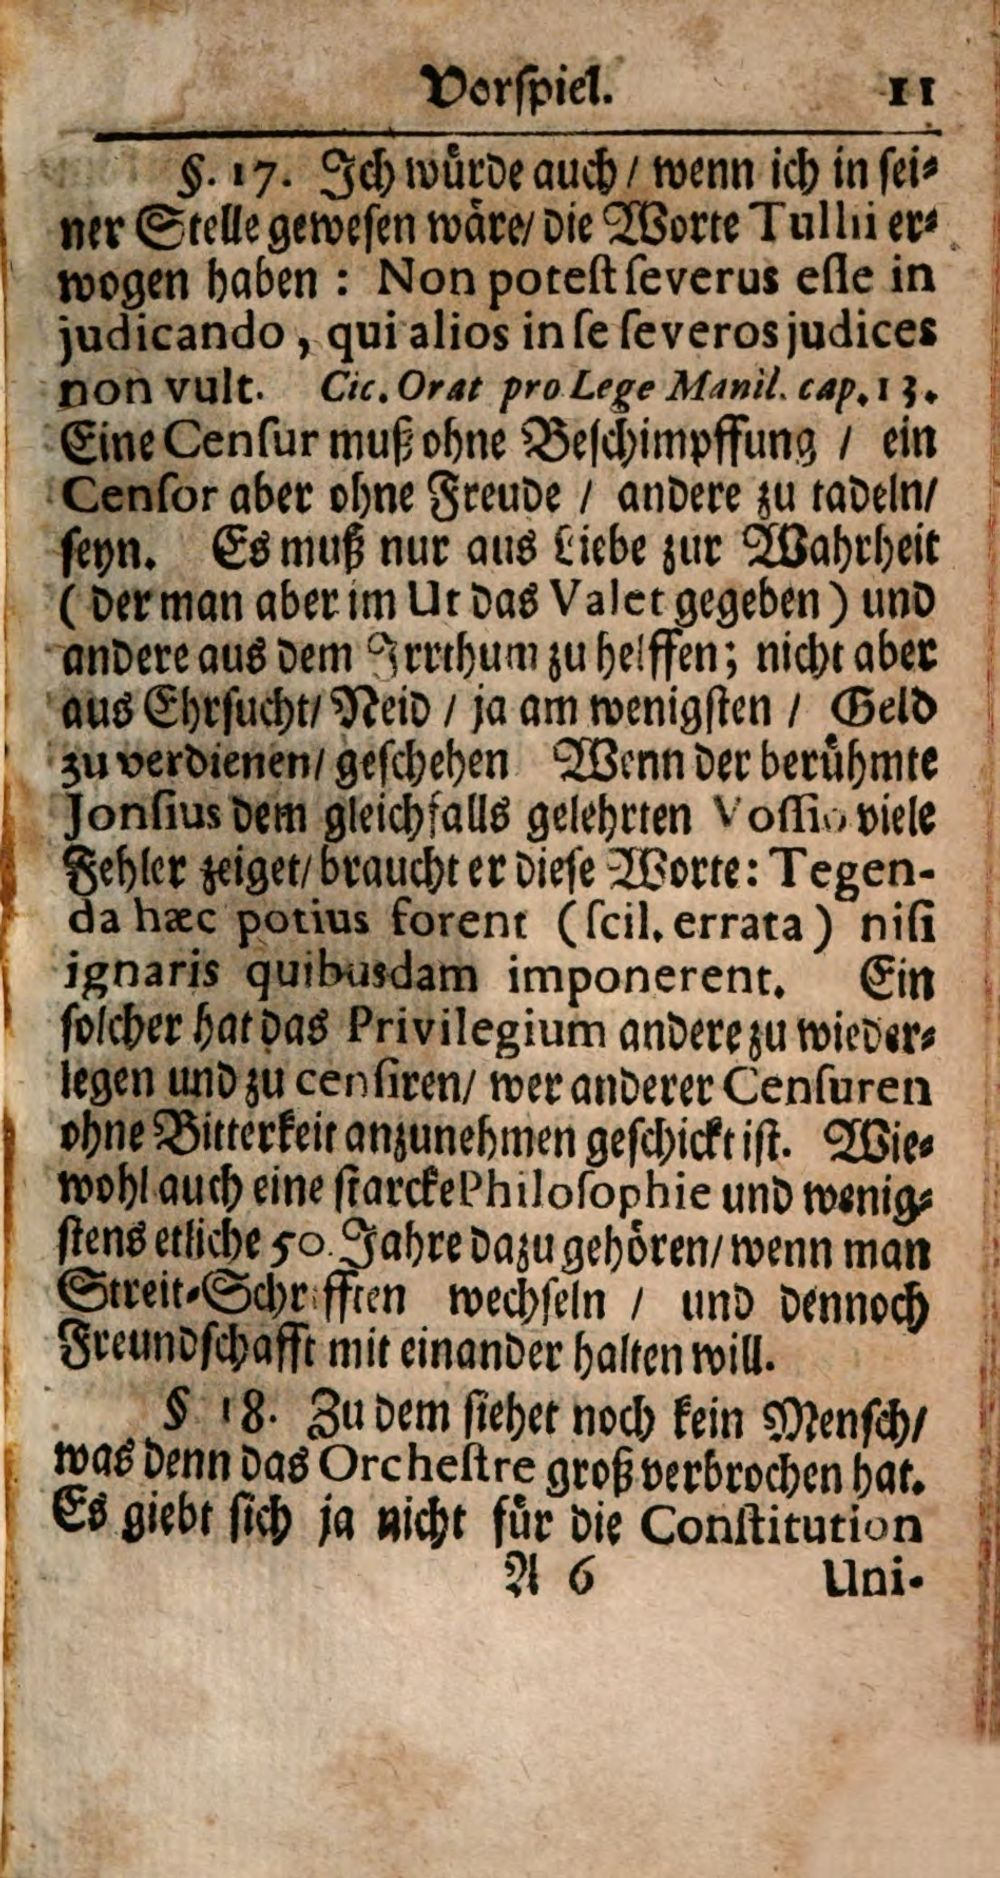 Vorſpiel. 11
§. 17. Ich würde auch / wenn ich in ſei⸗
ner Stelle geweſen wäre/ die Worte Tullii er⸗
wogen haben : Non poteſt ſeverus eſſe in
judicando, qui alios in ſe ſeveros judices
non vult. Cic. Orat pro Lege Manil. cap. 13.
Eine Cenſur muß ohne Beſchimpffung / ein
Cenſor aber ohne Freude / andere zu tadeln/
ſeyn. Es muß nur aus Liebe zur Wahrheit
( der man aber im Ut das Valet gegeben ) und
andere aus dem Irrthum zu helffen; nicht aber
aus Ehrſucht/ Neid / ja am wenigſten / Geld
zu verdienen/ geſchehen Wenn der berühmte
Jonſius dem gleichfalls gelehrten Voſſio viele
Fehler zeiget/ braucht er dieſe Worte: Tegen-
da hæc potius forent (ſcil. errata) niſi
ignaris quibusdam imponerent. Ein
ſolcher hat das Privilegium andere zu wieder⸗
legen und zu cenſiren/ wer anderer Cenſuren
ohne Bitterkeit anzunehmen geſchickt iſt. Wie⸗
wohl auch eine ſtarcke Philoſophie und wenig⸗
ſtens etliche 50. Jahre dazu gehören/ wenn man
Streit⸗Schrifften wechſeln / und dennoch
Freundſchafft mit einander halten will.
§ 18. Zu dem ſiehet noch kein Menſch/
was denn das Orcheſtre groß verbrochen hat.
Es giebt ſich ja nicht für die Conſtitution
A 6 Uni-